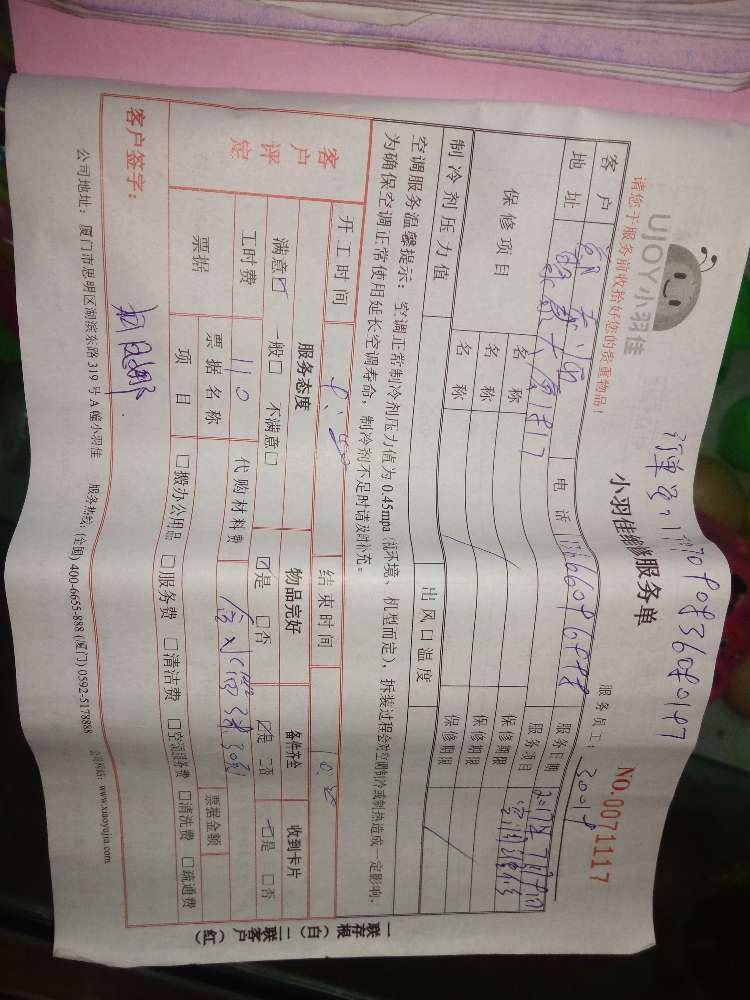 UJOY小羽佳
请您于服务前收拾好您的贵重物品！
小羽佳维修服务单
服务员工：30018
NO.0071117
客户 电话 服务日期
地址 服务项目
保修项目 名称 保修期限
名称 保修期限
名称 保修期限
制冷剂压力值 出风口温度
空调服务温馨提示：空调正常制冷剂压力值为0.45mpa（视环境、机型而定），拆装过程会对空调制冷或制热造成一定影响，
为确保空调正常使用延长空调寿命，制冷剂不足时请及时补充。
开工时间 结束时间
客户评定
服务态度 物品完好 备件齐全 收到卡片
满意☑ 一般□ 不满意□ ☑是 □否 ☑是 □否 ☑是 □否
工时费 110 代购材料费
票据 票据名称 票据金额
项目 □搬办公用品 □服务费 □清洁费 □空调服务费 □清洗费 □疏通费
客户签字：
公司地址：厦门市思明区湖滨东路319号A幢小羽佳 服务热线：(全国) 400-6655-888 (厦门) 0592-5178888 公司网站：www.xiaoyujia.com
一联存根（白）二联客户（红）